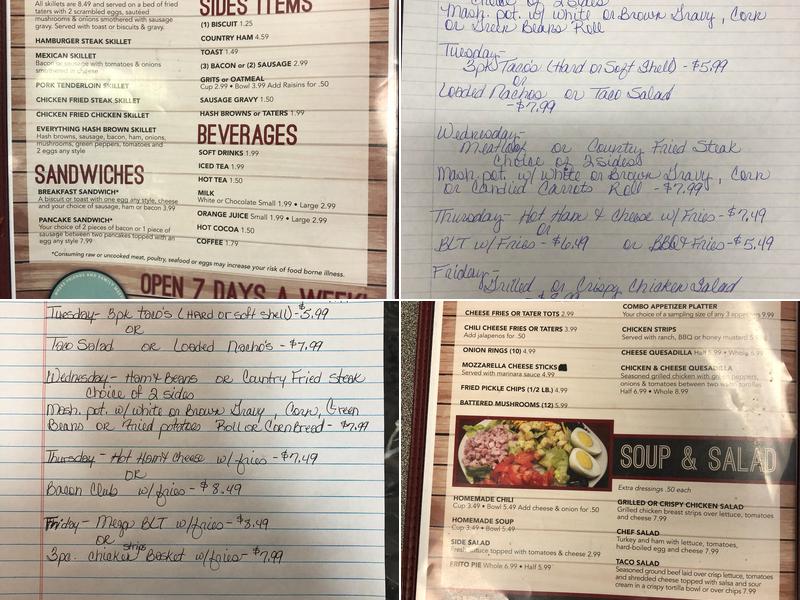 All skillets are 8.49 and served on a bed of fried
taters with 2 scrambled eggs, sautéed
mushrooms & onions smothered with sausage
gravy. Served with toast or biscuits & gravy.
HAMBURGER STEAK SKILLET
MEXICAN SKILLET
Bacon or sausage with tomatoes & onions
smothered in cheese
PORK TENDERLOIN SKILLET
CHICKEN FRIED STEAK SKILLET
CHICKEN FRIED CHICKEN SKILLET
EVERYTHING HASH BROWN SKILLET
Hash browns, sausage, bacon, ham, onions,
mushrooms, green peppers, tomatoes and
2 eggs any style
SANDWICHES
BREAKFAST SANDWICH*
A biscuit or toast with one egg any style, cheese
and your choice of sausage, ham or bacon 3.99
PANCAKE SANDWICH*
Your choice of 2 pieces of bacon or 1 piece of
sausage between two pancakes topped with an
egg any style 7.99
SIDES ITEMS
(1) BISCUIT 1.25
COUNTRY HAM 4.59
TOAST 1.49
(3) BACON or (2) SAUSAGE 2.99
GRITS or OATMEAL
Cup 2.99 • Bowl 3.99 Add Raisins for .50
SAUSAGE GRAVY 1.50
HASH BROWNS or TATERS 1.99
BEVERAGES
SOFT DRINKS 1.99
ICED TEA 1.99
HOT TEA 1.50
MILK
White or Chocolate Small 1.99 • Large 2.99
ORANGE JUICE Small 1.99 • Large 2.99
HOT COCOA 1.50
COFFEE 1.79
*Consuming raw or uncooked meat, poultry, seafood or eggs may increase your risk of food borne illness.
OPEN 7 DAYS A WEEK!
choice of 2 sides
Mash. pot. w/ white or Brown Gravy, Corn
or Green Beans Roll
Tuesday-
3pk Taco's (Hard or Soft Shell) - $5.99
or
Loaded Nachos or Taco Salad
- $7.99
Wednesday-
Meatloaf or Country Fried Steak
Choice of 2 sides
Mash. pot. w/ white or Brown Gravy, Corn
or Candied Carrots Roll - $7.99
Thursday- Hot Ham & Cheese w/ Fries - $7.49
or
BLT w/ Fries - $6.49 or BBQ & Fries - $5.49
Friday-
Grilled or Crispy Chicken Salad
Tuesday- 3pk taco's (Hard or soft shell) - $5.99
OR
Taco Salad or Loaded Nacho's - $7.99
Wednesday- Ham & Beans or Country Fried Steak
choice of 2 sides
Mash. pot. w/ white or Brown Gravy, Corn, Green
Beans or Fried potatoes Roll or Cornbread - $7.99
Thursday- Hot Ham & cheese w/ fries - $7.49
OR
Bacon Club w/ fries - $8.49
Friday- Mega BLT w/ fries - $8.49
OR
3pc. chicken strips Basket w/ fries - $7.99
CHEESE FRIES OR TATER TOTS 2.99
CHILI CHEESE FRIES OR TATERS 3.99
Add jalapenos for .50
ONION RINGS (10) 4.99
MOZZARELLA CHEESE STICKS
Served with marinara sauce 4.99
FRIED PICKLE CHIPS (1/2 LB.) 4.99
BATTERED MUSHROOMS (12) 5.99
COMBO APPETIZER PLATTER
Your choice of a sampling size of any 3 appetizers 9.99
CHICKEN STRIPS
Served with ranch, BBQ or honey mustard 5.99
CHEESE QUESADILLA Half 5.99 • Whole
CHICKEN & CHEESE QUESADILLA
Seasoned grilled chicken with green peppers,
onions & tomatoes between two warm tortillas
Half 6.99 • Whole 8.99
SOUP & SALAD
Extra dressings .50 each
HOMEMADE CHILI
Cup 3.49 • Bowl 5.49 Add cheese & onion for .50
HOMEMADE SOUP
Cup 3.49 • Bowl 5.49
SIDE SALAD
Fresh lettuce topped with tomatoes & cheese 2.99
FRITO PIE Whole 6.99 • Half 5.99
GRILLED OR CRISPY CHICKEN SALAD
Grilled chicken breast strips over lettuce, tomatoes,
and cheese 7.99
CHEF SALAD
Turkey and ham with lettuce, tomatoes,
hard-boiled egg and cheese 7.99
TACO SALAD
Seasoned ground beef laid over crisp lettuce, tomatoes
and shredded cheese topped with salsa and sour
cream in a crispy tortilla bowl or over chips 7.99